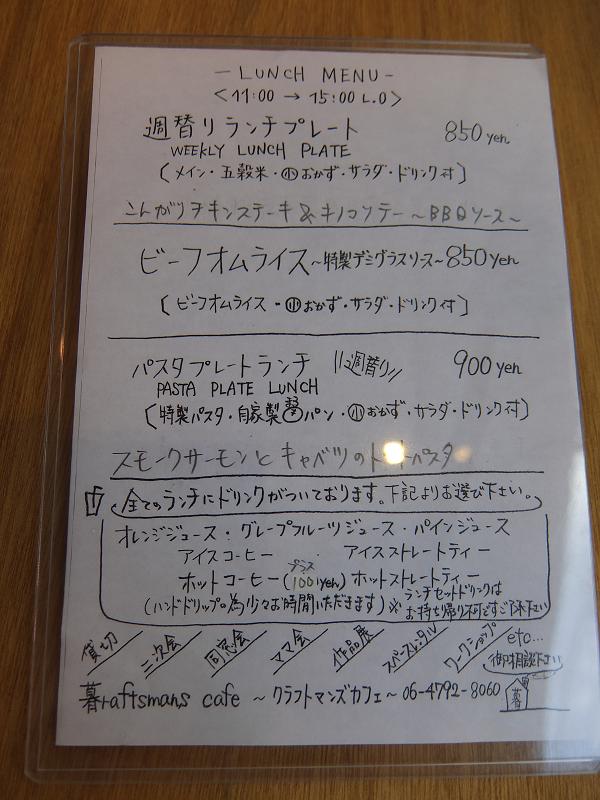 - LUNCH MENU -
<11:00 → 15:00 L.O>
週替りランチプレート 850yen
WEEKLY LUNCH PLATE
(メイン・五穀米・小おかず・サラダ・ドリンク付)
こんがりチキンステーキ&キノコソテー~BBQソース~
ビーフオムライス~特製デミグラスソース~850yen
(ビーフオムライス・小おかず・サラダ・ドリンク付)
パスタプレートランチ \\週替り// 900yen
PASTA PLATE LUNCH
(特製パスタ・自家製パン・小おかず・サラダ・ドリンク付)
スモークサーモンとキャベツのトマトパスタ
全てのランチにドリンクがついております。下記よりお選び下さい。
オレンジジュース・グレープフルーツジュース・パインジュース
アイスコーヒー アイスストレートティー
ホットコーヒー(プラス100yen) ホットストレートティー
(ハンドドリップの為少々お時間いただきます) ※ランチセットドリンクはお持ち帰り不可ですご了承下さい
貸切 二次会 同窓会 ママ会 作品展 スペースレンタル ワークショップ etc...
御相談下さい
暮raftsmans cafe ~クラフトマンズカフェ~ 06-4792-8060 暮